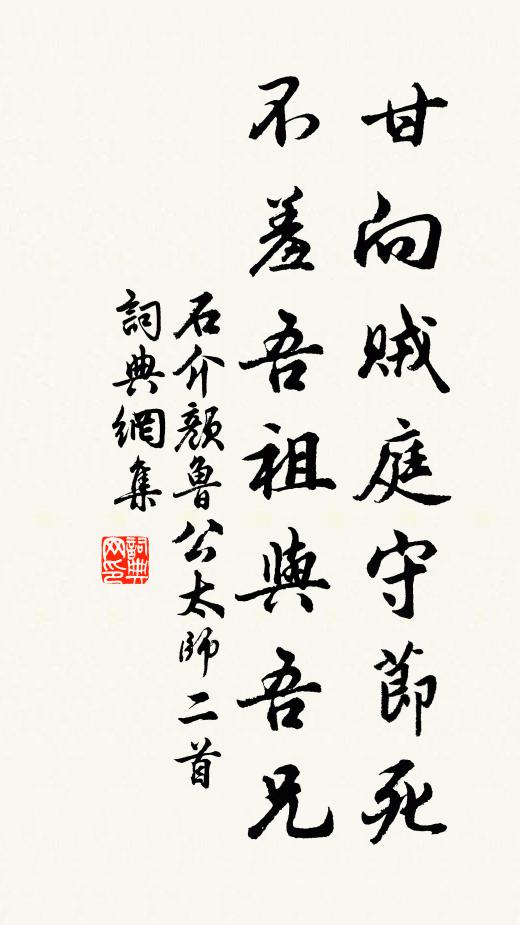 甘向賊庭守節死
不羞吾祖與吾兄
石介顏魯公太師二首
詞典網集
詞典网印